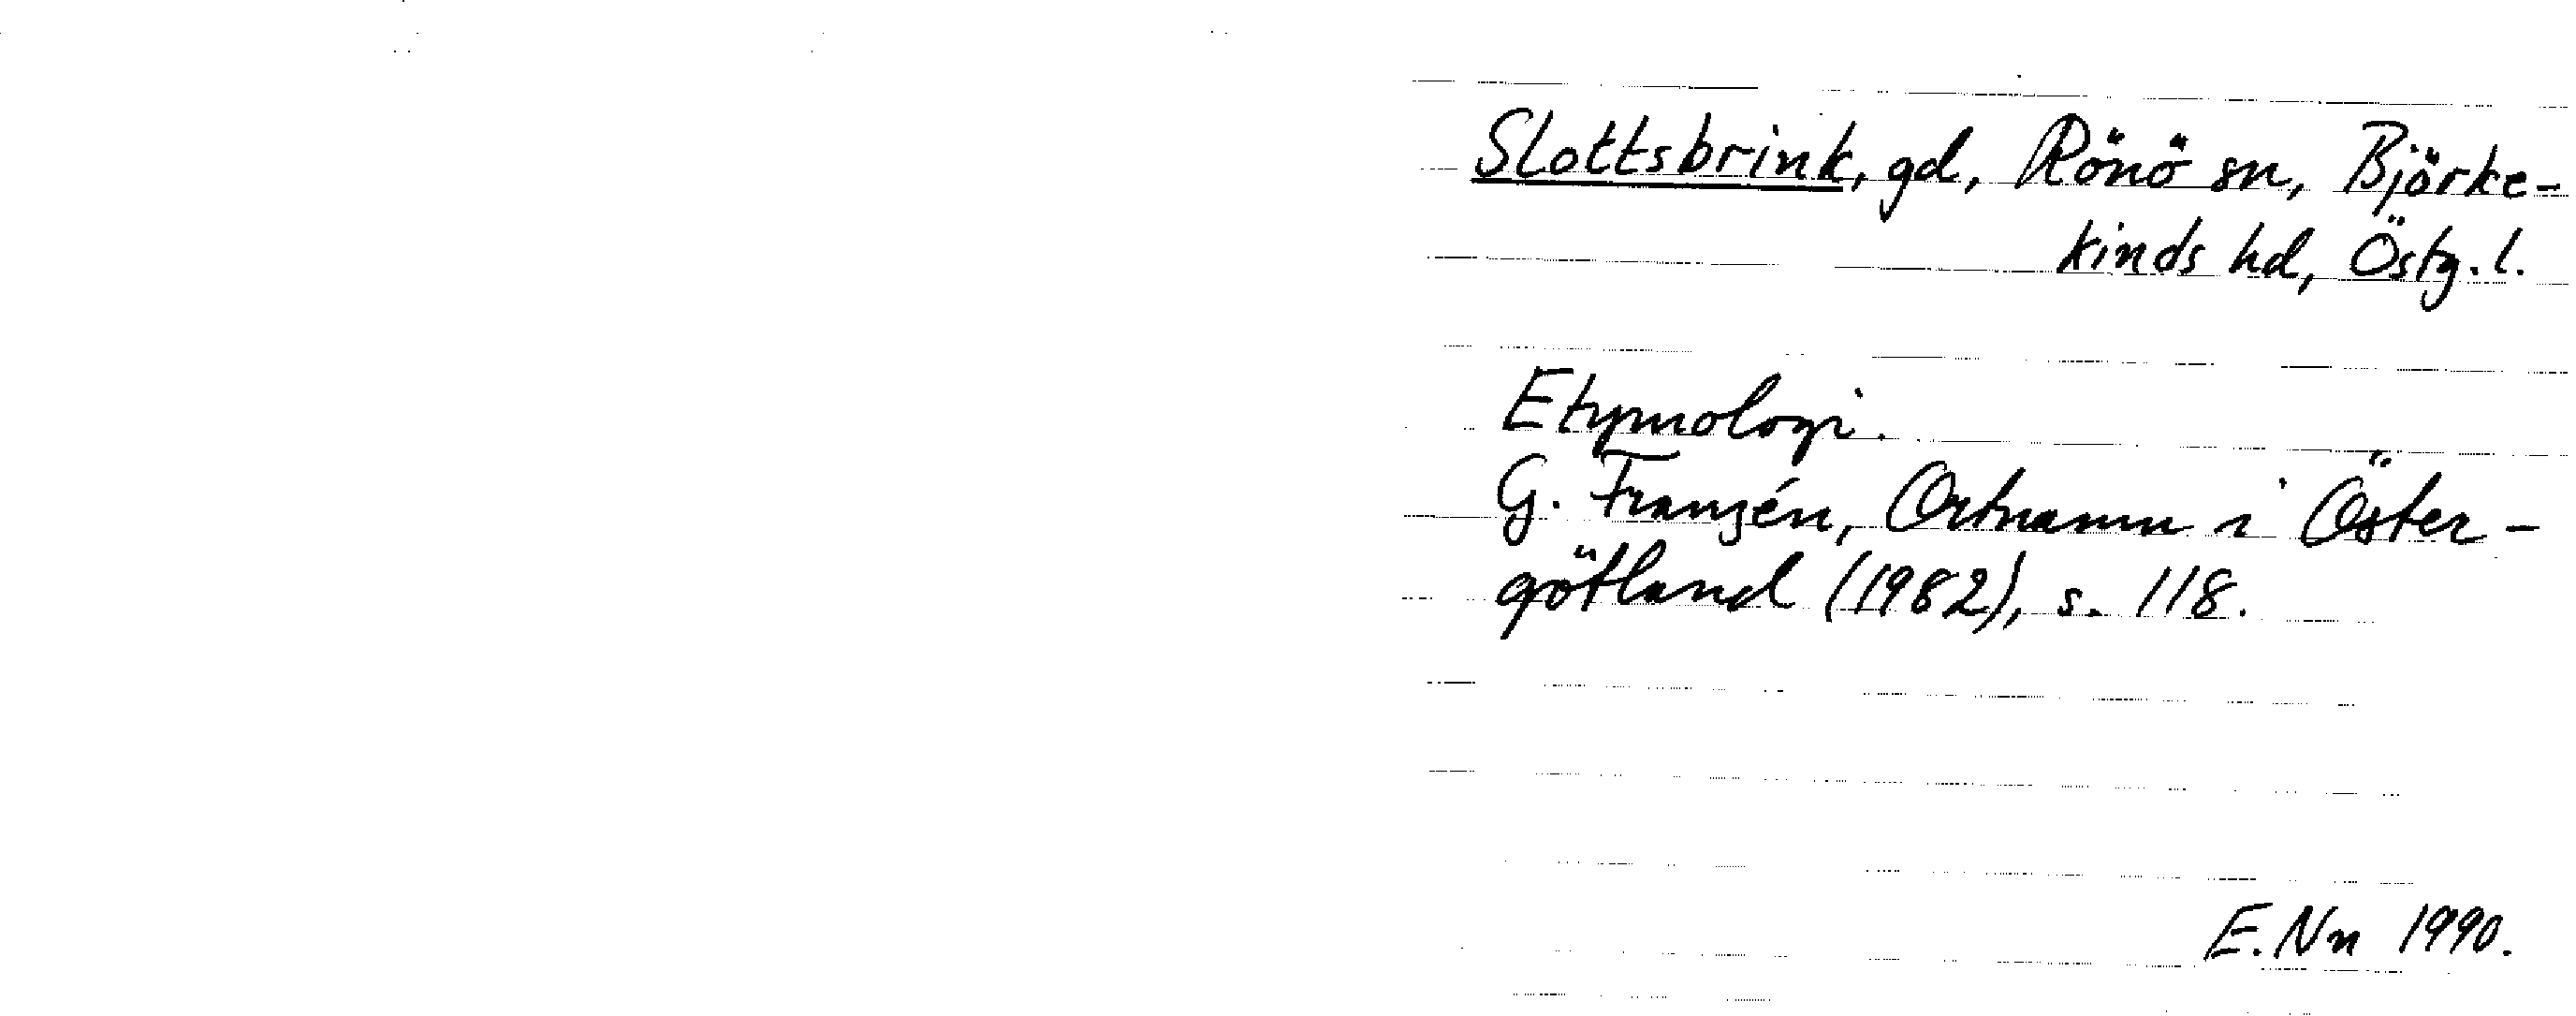 Slottsbrink, gd, Rönö sn, Björke-
kinds hd, Östg. l.
Etymologi.
G. Franzén, Ortnamn i Öster-
götland (1982), s. 118.
E. Nn 1990.